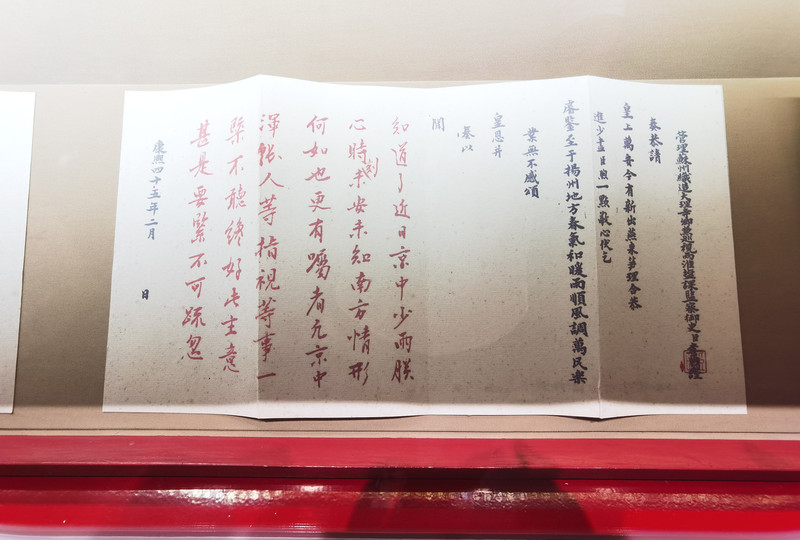 管理蘇州織造大理寺卿兼巡視兩淮鹽課監察御史臣李煦謹
奏恭請
皇上萬安今有新出燕來笋理合恭
進少盡臣煦一點敬心伏乞
睿鑒至于揚州地方春氣和暖雨順風調萬民樂
業無不感頌
皇恩并
奏以
聞
知道了近日京中少雨朕
心時刻未安未知南方情形
何如也更有囑者凡京中
渾帳人等指視等事一
槩不聽纔好此主意
甚是要緊不可疏忽
康熙四十五年二月 日